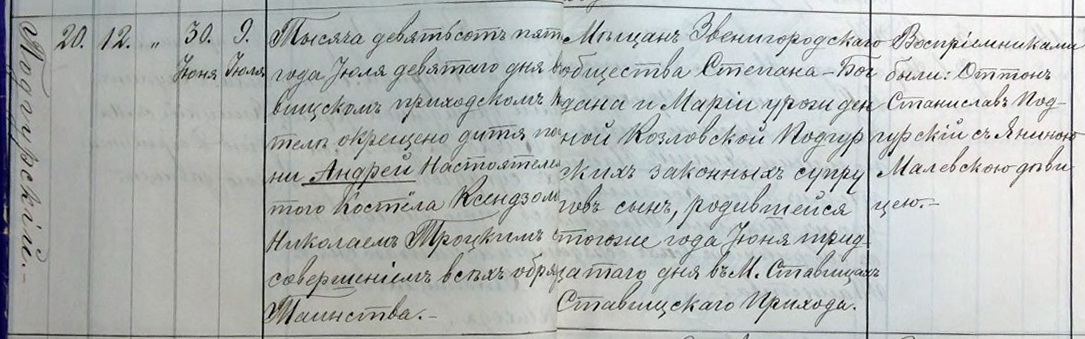 Подгурскій.-
20. 12. " 30. 9.
Юня Юля
Тысяча девятьсотъ пят
года Юля девятаго дня в
вищскомъ приходскомъ К
телѣ окрещено дитя по
ни Андрей Настоятелем
того Костёла Ксендзом
Николаемъ Троцкимъ с
совершеніемъ всѣхъ обря
Таинства.-
Мѣщанъ Звенигородскаго
общества Степана-Бог
дана и Маріи урожден
ной Козловской Подгур
скихъ законныхъ супру
говъ сынъ, родившейся
тогоже года Юня трид
цатаго дня въ М. Ставищахъ
Ставищскаго Прихода.
Воспріемниками
были: Оттонъ
Станиславъ Под-
гурскій съ Яниною
Малевскою дѣви
цею.-